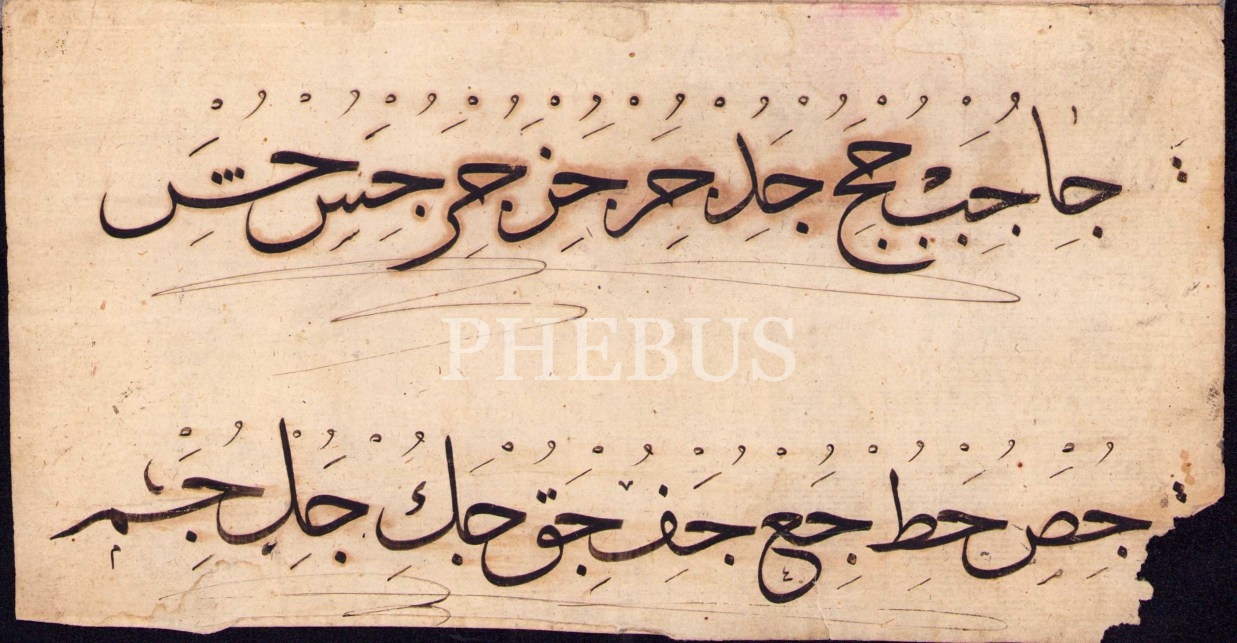 جا جب جج جد جر جز جر جس جش
PHEBUS
جص جط جع جف جق جك جل جم